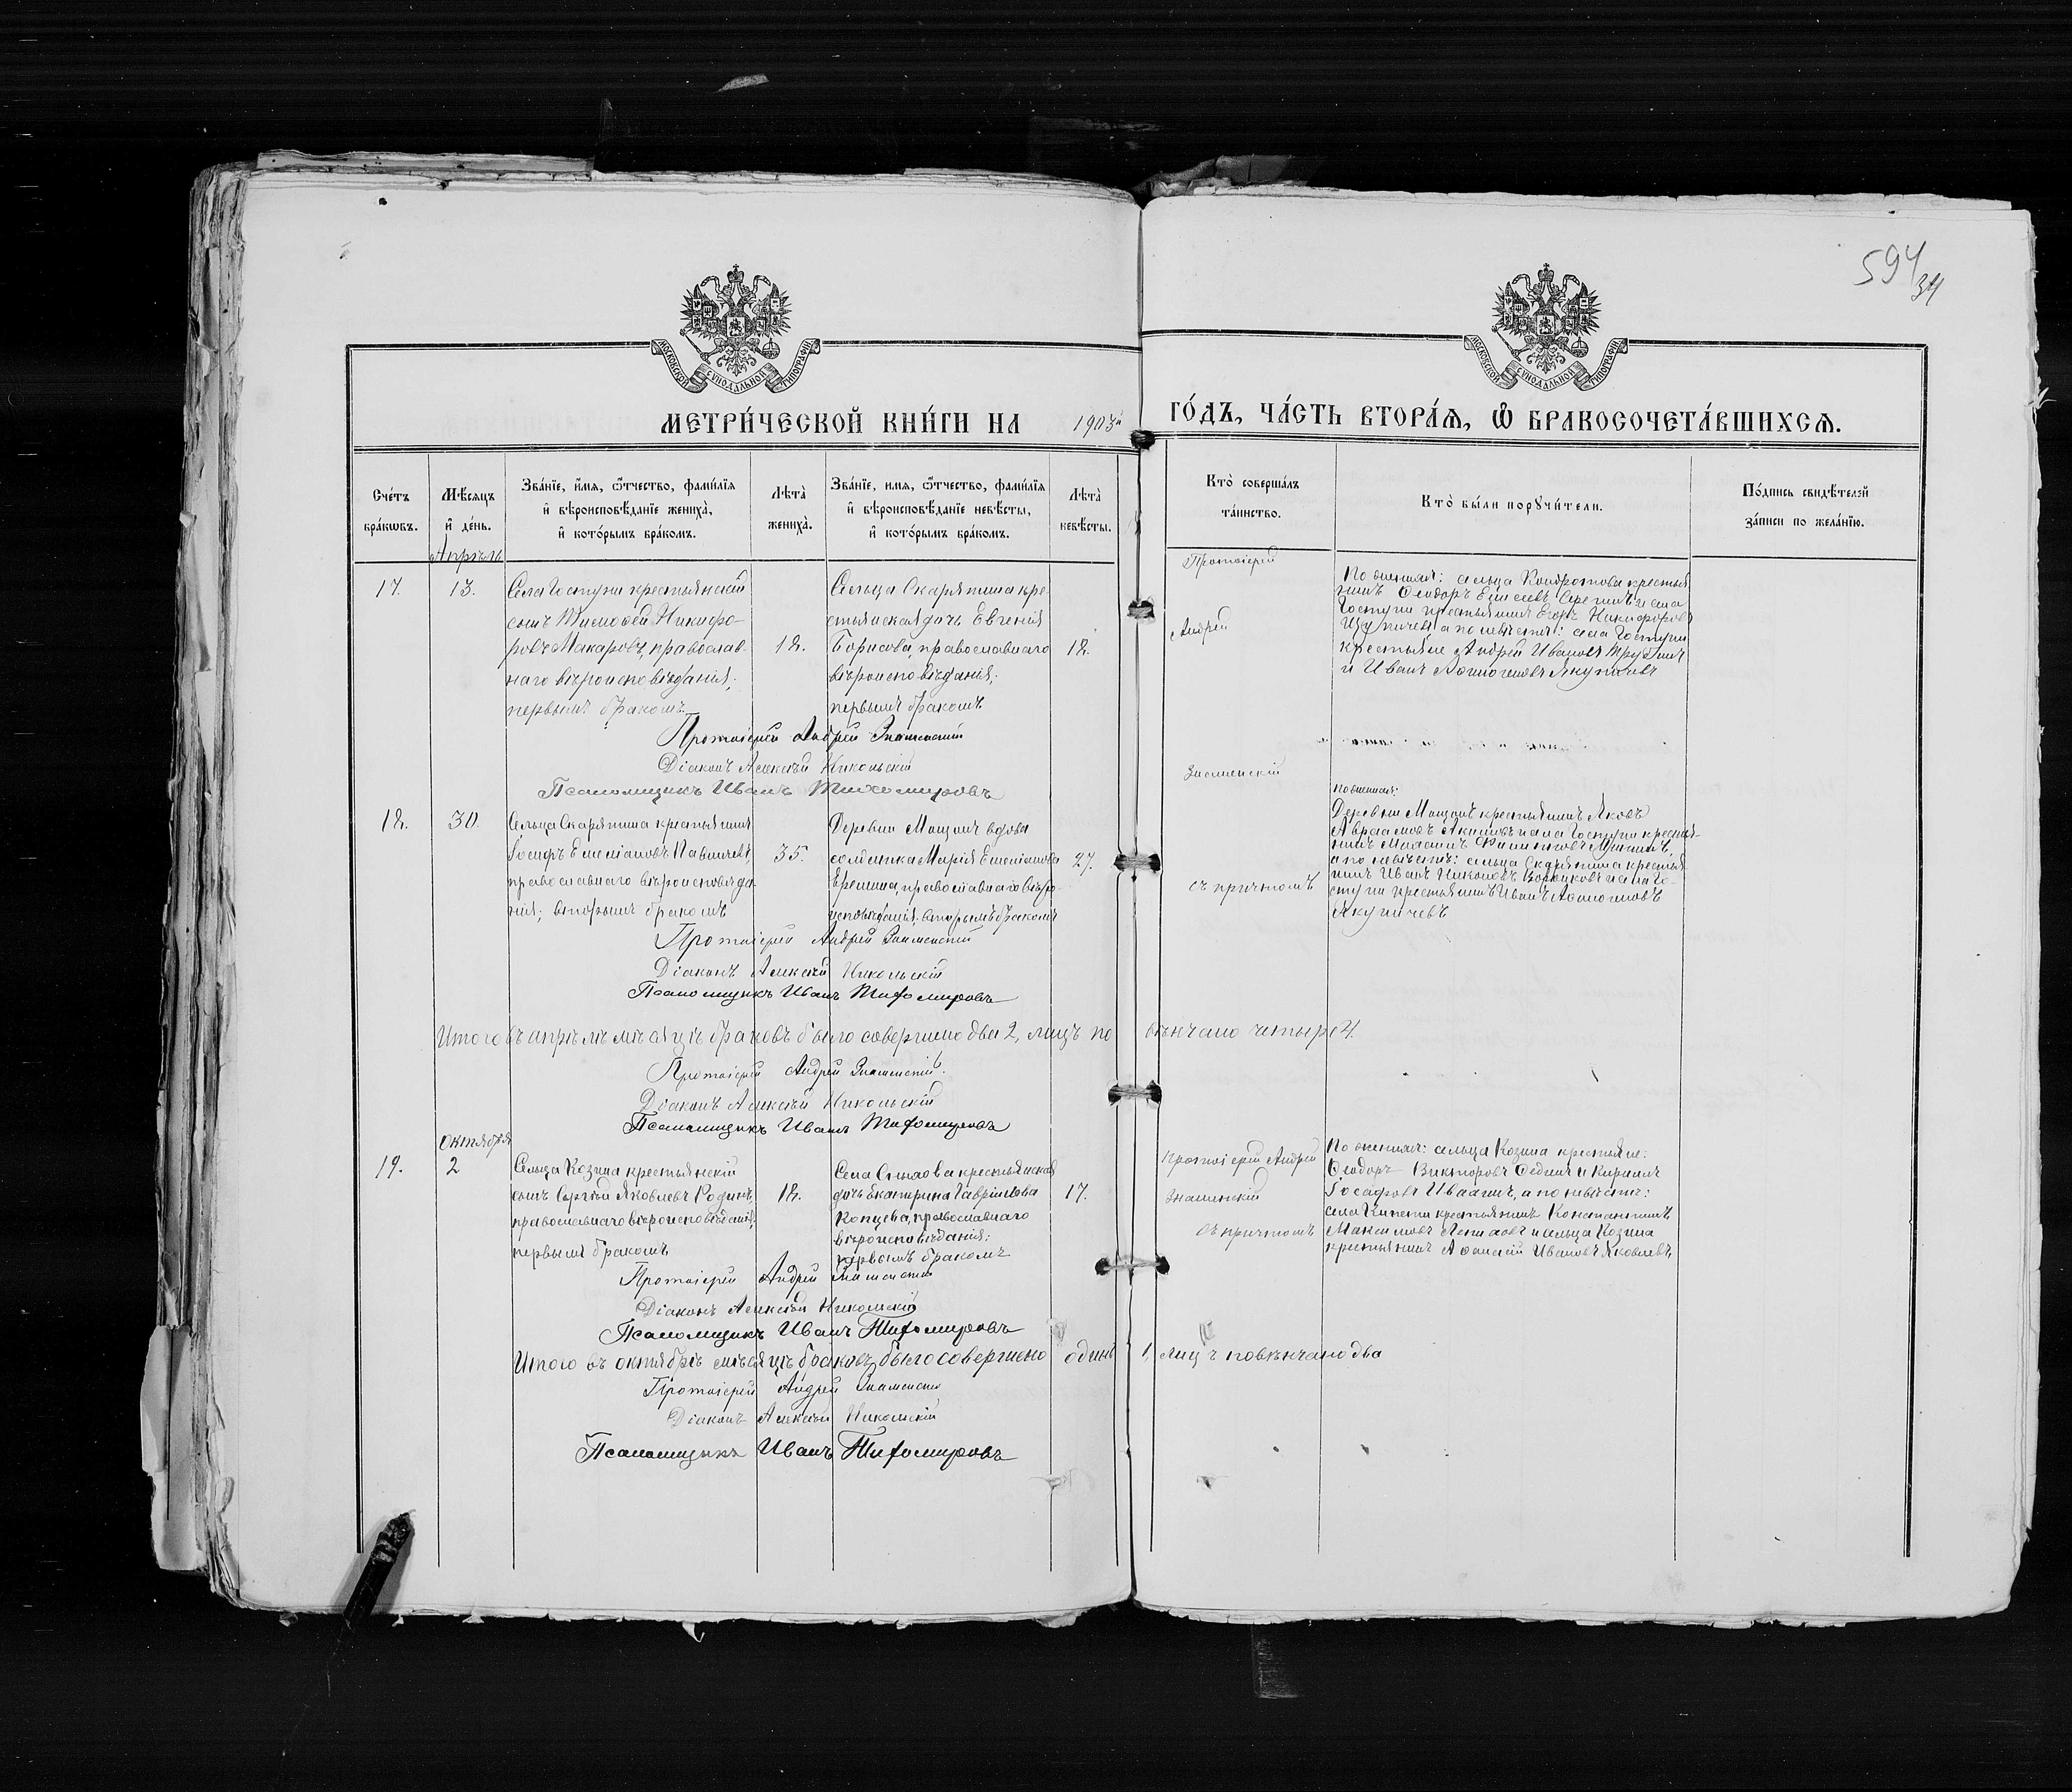 594
34
МОСКОВСКОЙ СѴНОДАЛЬНОЙ ТИПОГРАФІИ
МОСКОВСКОЙ СѴНОДАЛЬНОЙ ТИПОГРАФІИ
МЕТРИ́ЧЕСКОЙ КНИ́ГИ НА 1903й ГО́ДЪ, ЧА́СТЬ ВТОРА́Я, Ѽ БРАКОСОЧЕТА́ВШИХСѦ.
Сче́тъ
бра́кѡвъ.
Мѣ́сяцъ
и҆ де́нь.
Зва́нїе, и҆́мя, ѻ҆́тчество, фами́лїя
и҆ вѣроисповѣ́данїе жениха̀,
и҆ кото́рымъ бра́комъ.
Лѣ́та̀
жениха̀.
Зва́нїе, имя, ѻ҆́тчество, фами́лїя
и҆ вѣроисповѣ́данїе невѣ́сты,
и҆ кото́рымъ бра́комъ.
Лѣ́та̀
невѣ́сты.
Кто̀ соверша́лъ
та́инство.
Кто̀ бы́ли порꙋчи́тели.
По́дпись свидѣ́телей
за́писи по жела́нїю.
Апрѣль
17.
13.
Села Гостуни крестьянскій
сынъ Тимоѳей Никифо-
ровъ Макаровъ, православ-
наго вѣроисповѣданія;
первымъ бракомъ
18.
Сельца Скарятина кре-
стьянская дочь Евгенія
Борисова, православнаго
вѣроисповѣданія;
первымъ бракомъ
18.
Протоіерей
Андрей
Знаменскій
съ причтомъ
По женихѣ: сельца Кондратова крестья
нинъ Ѳеодоръ Елисеевъ и села
Гостуни крестьянинъ Егоръ Никифоровъ
а по невѣстѣ: села Гостуни
крестьяне Андрей Ивановъ
и Иванъ
Протоіерей Андрей Знаменскій
Діаконъ Алексѣй Никольскій
Псаломщикъ Иванъ Тихомировъ
18.
30.
Сельца Скарятина крестьянинъ
Іосифъ Емеліановъ
православнаго вѣроисповѣда-
нія; вторымъ бракомъ
35.
Деревни Мощонъ вдова
солдатка Марія Емеліанова
Еремина, православнаго вѣро-
исповѣданія; вторымъ бракомъ
27.
По женихѣ:
Деревни Мощонъ крестьянинъ Яковъ
Авраамовъ Акимовъ и села Гостуни крестья-
нинъ
а по невѣстѣ: сельца Скарятина крестья
нинъ Иванъ и села Го-
стуни крестьянинъ Иванъ
Якуничевъ
Протоіерей Андрей Знаменскій
Діаконъ Алексѣй Никольскій
Псаломщикъ Иванъ Тихомировъ
Итого въ апрѣлѣ мѣсяцѣ браковъ было совершено два 2, лицъ по вѣнчано четыре 4.
Протоіерей Андрей Знаменскій.
Діаконъ Алексѣй Никольскій
Псаломщикъ Иванъ Тихомировъ
Октября
19.
2
Сельца Козина крестьянскій
сынъ Сергѣй Яковлевъ Родинъ,
православнаго вѣроисповѣданія;
первымъ бракомъ
18.
Села крестьянская
дочь Екатерина Гавріилова
Копцева, православнаго
вѣроисповѣданія;
первымъ бракомъ
17.
Протоіерей Андрей
Знаменскій
съ причтомъ
По женихѣ: сельца Козина крестьяне:
Ѳеодоръ Викторовъ Сединъ и Кириллъ
а по невѣстѣ:
села крестьянинъ Константинъ
Максимовъ и сельца Козина
крестьянинъ Аѳанасій Ивановъ Яковлевъ
Протоіерей Андрей Знаменскій
Діаконъ Алексѣй Никольскій
Псаломщикъ Иванъ Тихомировъ
Итого въ октябрѣ мѣсяцѣ браковъ было совершено одинъ 1, лицъ повѣнчано два
Протоіерей Андрей Знаменскій
Діаконъ Алексѣй Никольскій
Псаломщикъ Иванъ Тихомировъ